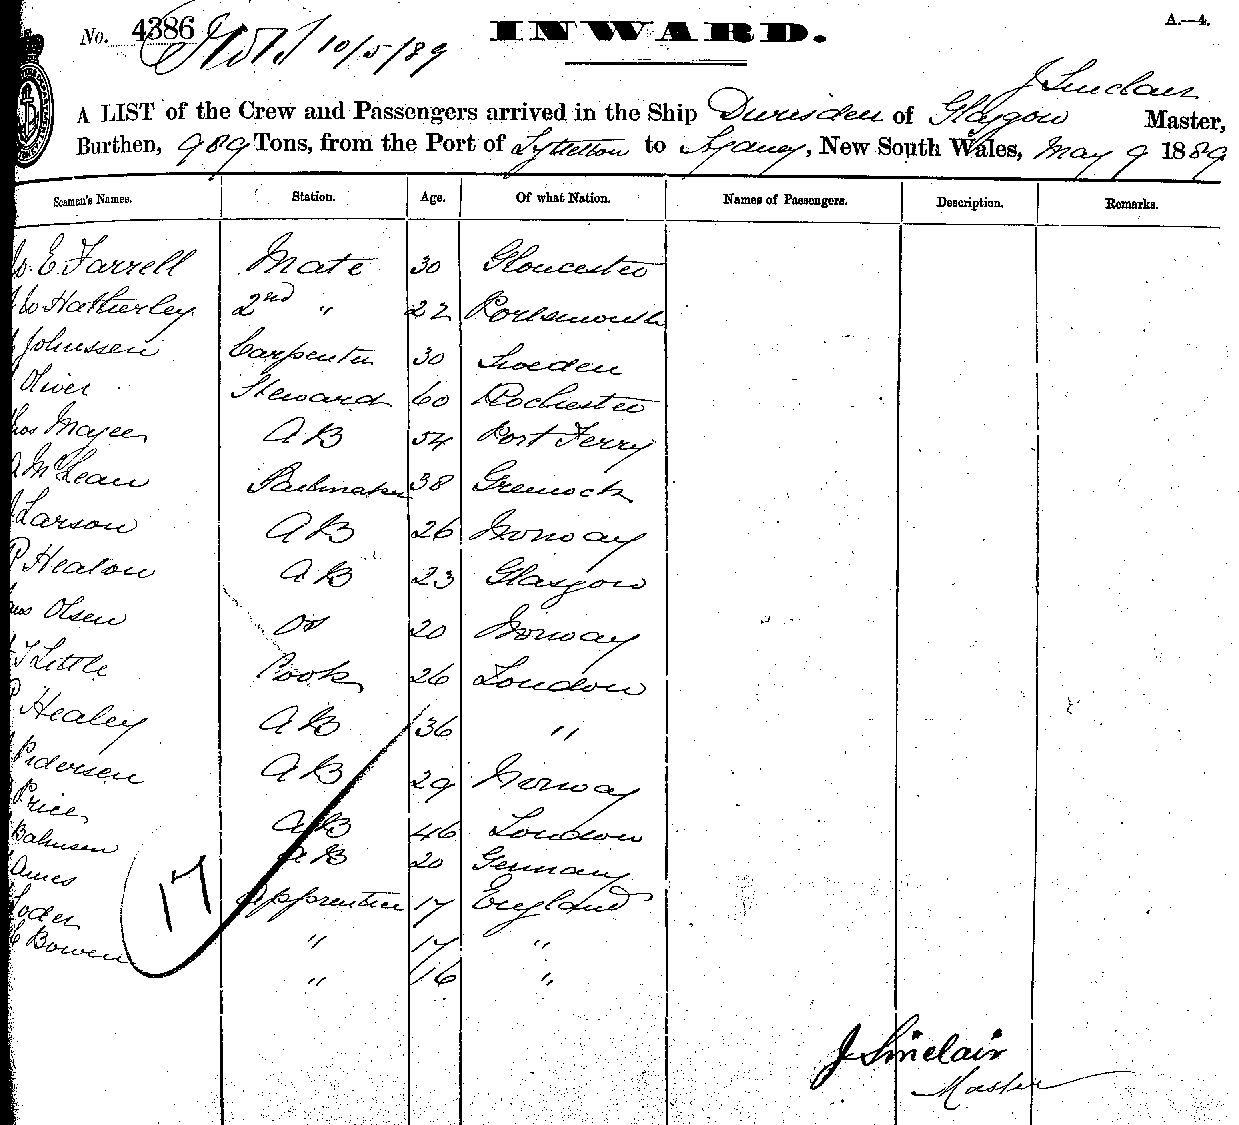 No. 4386 10/5/89
INWARD.
A.—4.
J Sinclair
A LIST of the Crew and Passengers arrived in the Ship Durisdeer of Glasgow Master,
Burthen, 989 Tons, from the Port of Lyttelton to Sydney, New South Wales, May 9 1889
Seamen's Names. Station. Age. Of what Nation. Names of Passengers. Description. Remarks.
E Farrell Mate 30 Gloucester
Hatherley 2nd " 22 Portsmouth
Johnssen Carpenter 30 Sweden
Oliver Steward 60 Rochester
Magee AB 54 Port Ferry
McLean Sailmaker 38 Greenock
Larson AB 26 Norway
P Healon AB 23 Glasgow
Olsen OS 20 Norway
T Little Cook 26 London
P Healey AB 36 "
Pedersen AB 29 Norway
Price AB 46 London
Bahnsen AB 20 Germany
Ames Apprentice 17 England
Loder " 17 "
Bowen " 16 "
17
J Sinclair
Master